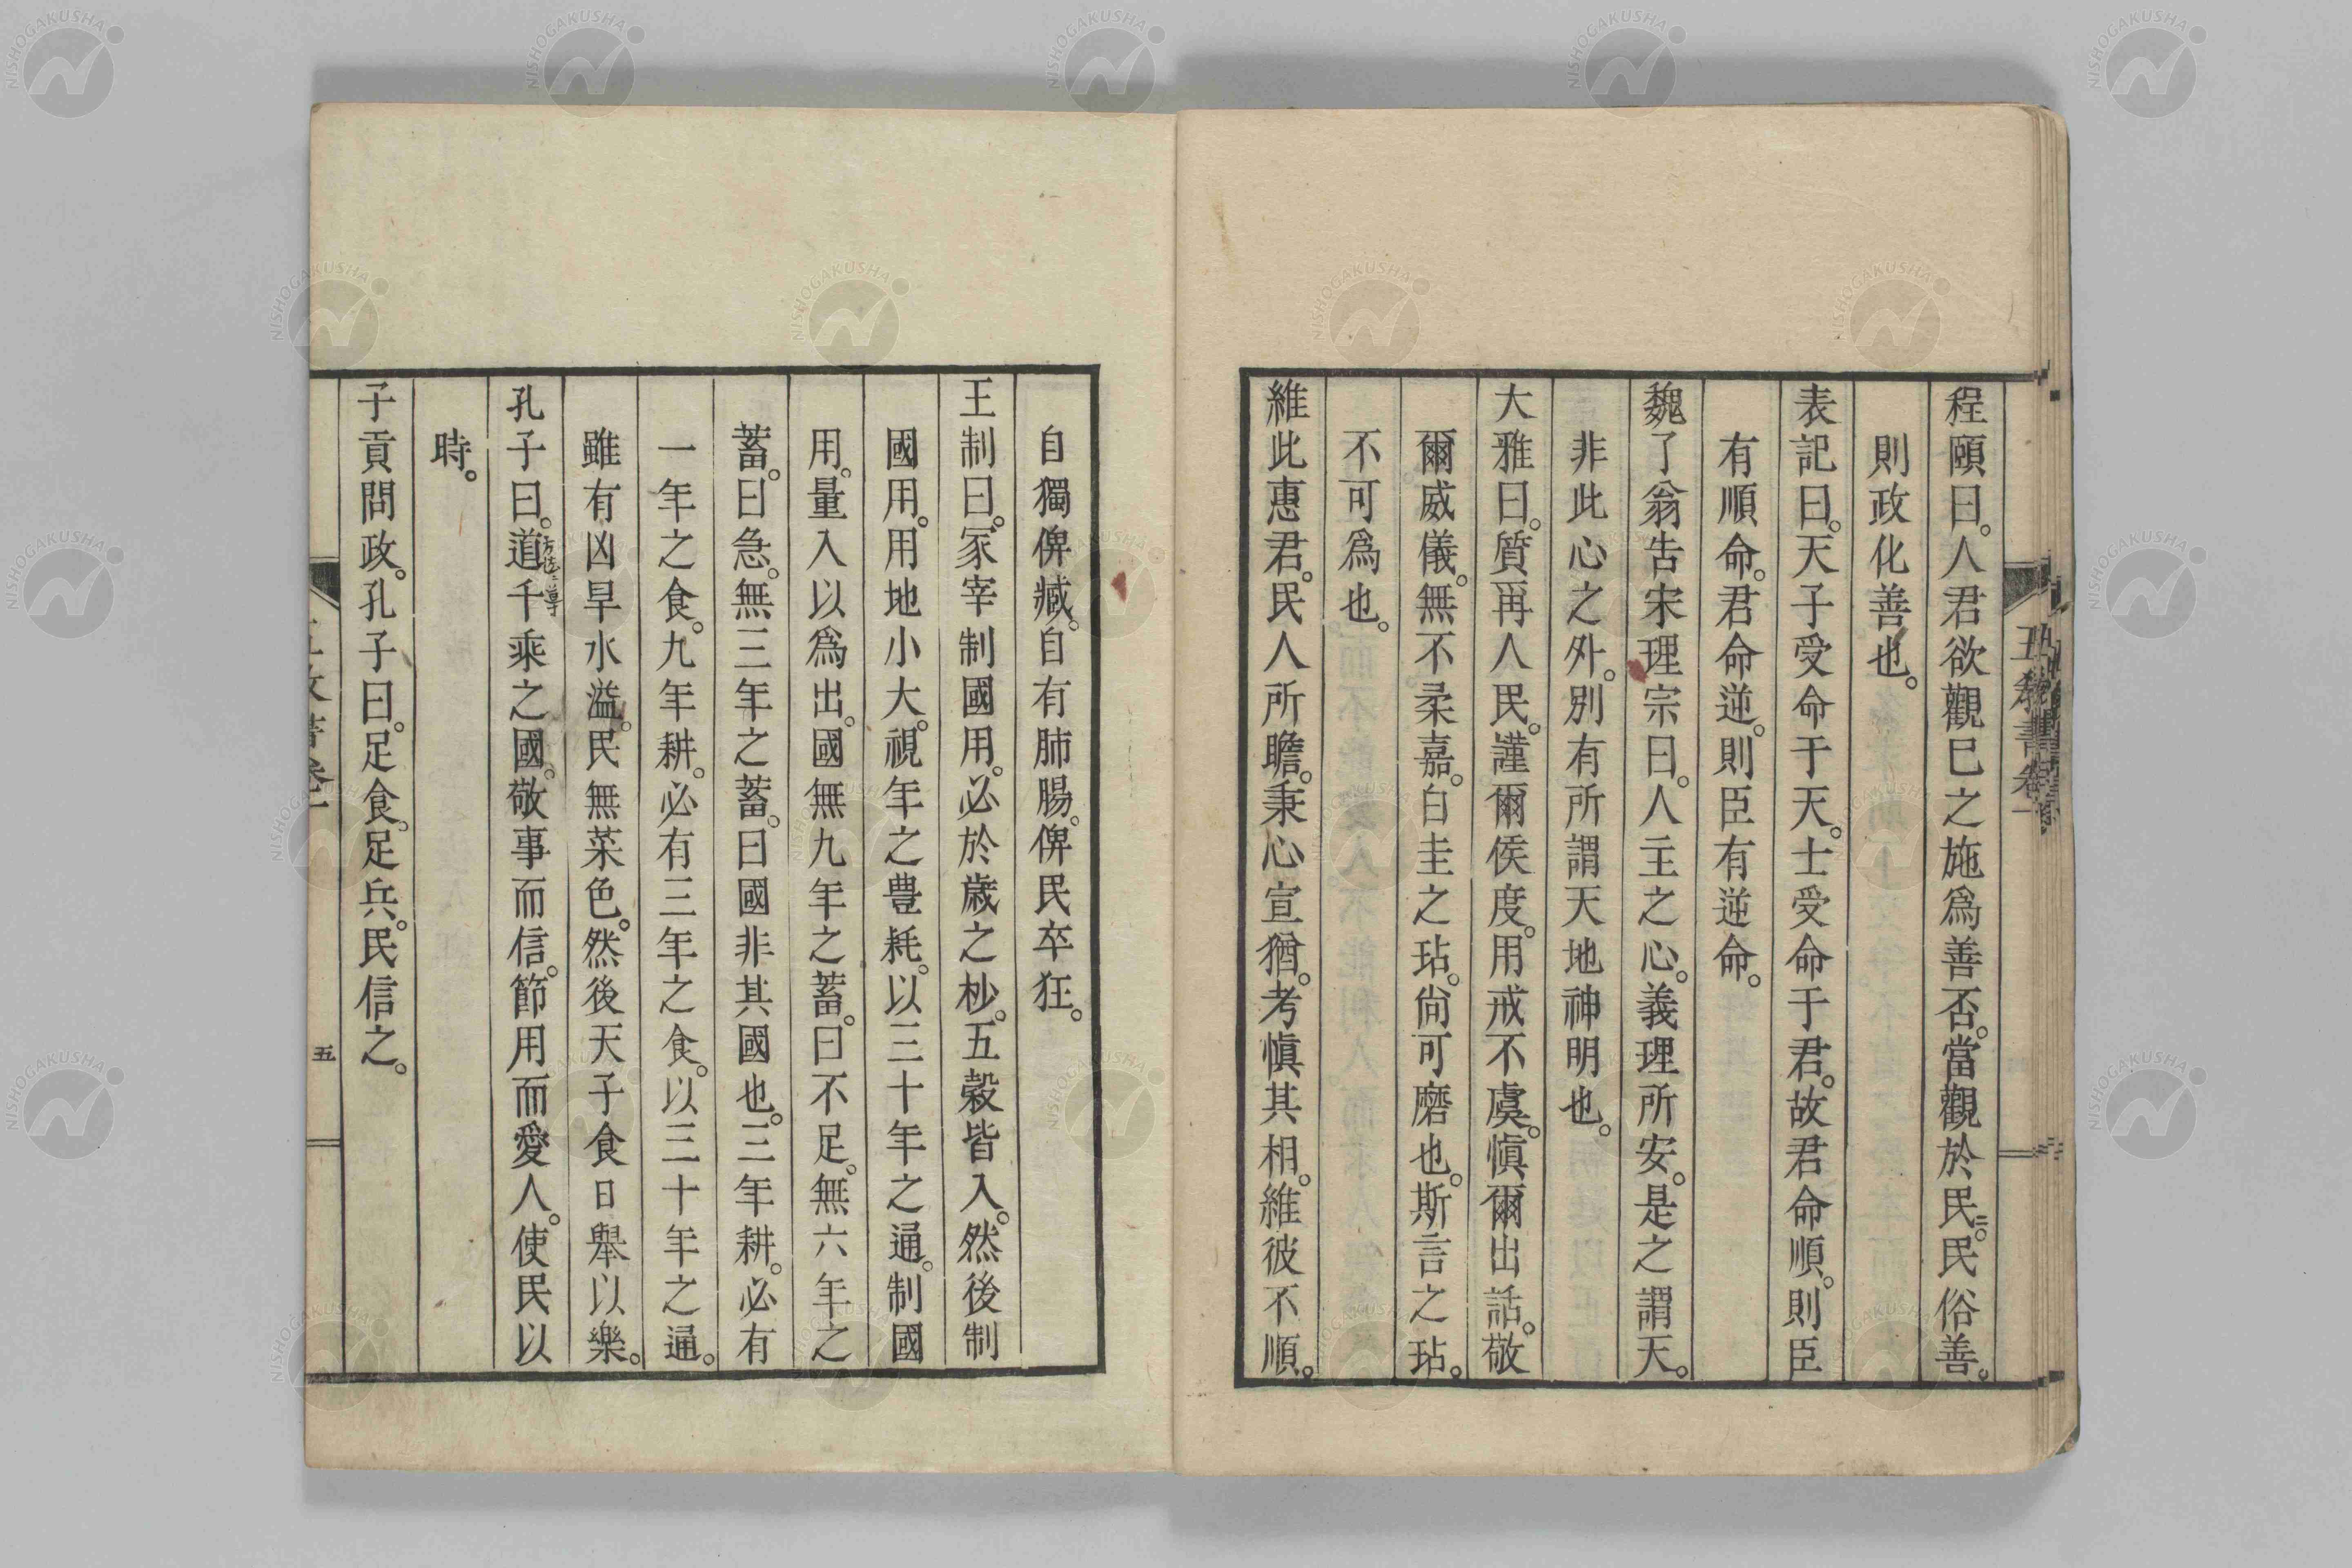 程頤曰。人君欲觀已之施爲善否。當觀於民。民俗善。
則政化善也。
表記曰。天子受命于天。士受命于君。故君命順。則臣
有順命。君命逆。則臣有逆命。
魏了翁告宋理宗曰。人主之心。義理所安。是之謂天。
非此心之外。別有所謂天地神明也。
大雅曰。質爾人民。謹爾侯度。用戒不虞。愼爾出話。敬
爾威儀。無不柔嘉。白圭之玷。尙可磨也。斯言之玷。
不可爲也。
維此惠君。民人所瞻。秉心宣猶。考愼其相。維彼不順。
自獨俾臧。自有肺腸。俾民卒狂。
王制曰。冡宰制國用。必於歲之杪。五穀皆入。然後制
國用。用地小大。視年之豊耗。以三十年之通。制國
用。量入以爲出。國無九年之蓄。曰不足。無六年之
蓄。曰急。無三年之蓄。曰國非其國也。三年耕。必有
一年之食。九年耕。必有三年之食。以三十年之通。
雖有凶旱水溢。民無菜色。然後天子食日舉以樂。
孔子曰。道千乘之國。敬事而信。節用而愛人。使民以
時。
子貢問政。孔子曰。足食。足兵。民信之。
五
NISHOGAKUSHA